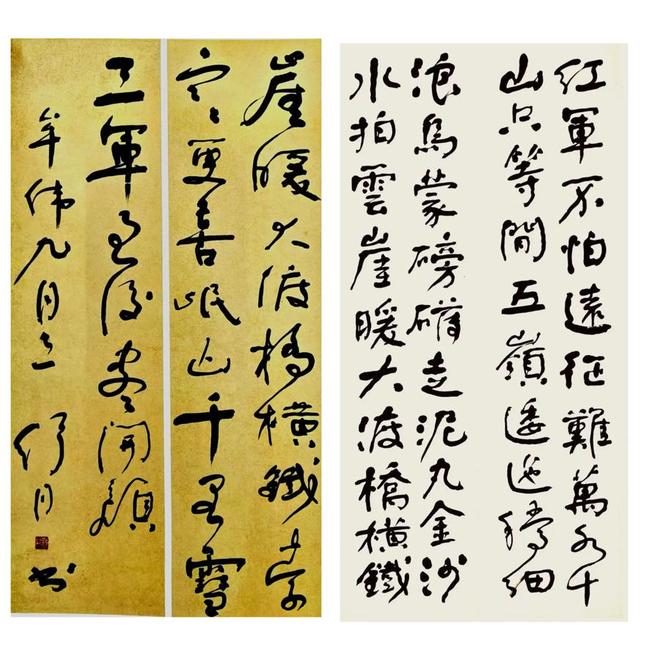 紅軍不怕遠征難萬水千
山只等閒五嶺逶迤騰細
浪烏蒙磅礴走泥丸金沙
水拍雲崖暖大渡橋橫鐵
崖暖大渡橋橫鐵索
寒更喜岷山千里雪
三軍過後盡開顏
九月 月书